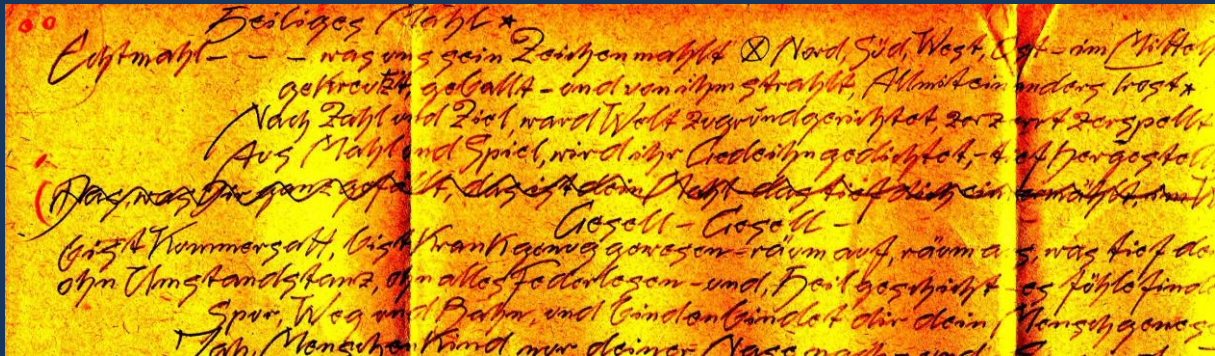 Heiliges Mahl *
Echtmahl - - - was uns sein Zeichen mahlt ⊗ Nord, Süd, West, Ost - im Mittel
gekreuzt geballt - und von ihm strahlt, Allmiteinanders trost *
Nach Zahl und Ziel, ward Welt zugrundgerichtet, zerzerrt zerspellt
Aus Mahl und Spiel, wird ihr Gedeihn gedichtet, - tief hergestell
(Das, was Dir ganz gefällt, das ist dein Mahl das tief dich ein
Gesell - Gesell -
bist Kummersatt, bist Krank genug gewesen - räum auf, räum aus, was tief de
ohn Umstandstanz, ohn alles Federlesen - und, Heil geschicht - es fühle find
Spur, Weg und Bahn, und binden bindet dir dein Menschgewes
Menschenkind nur deiner Nase nach - und